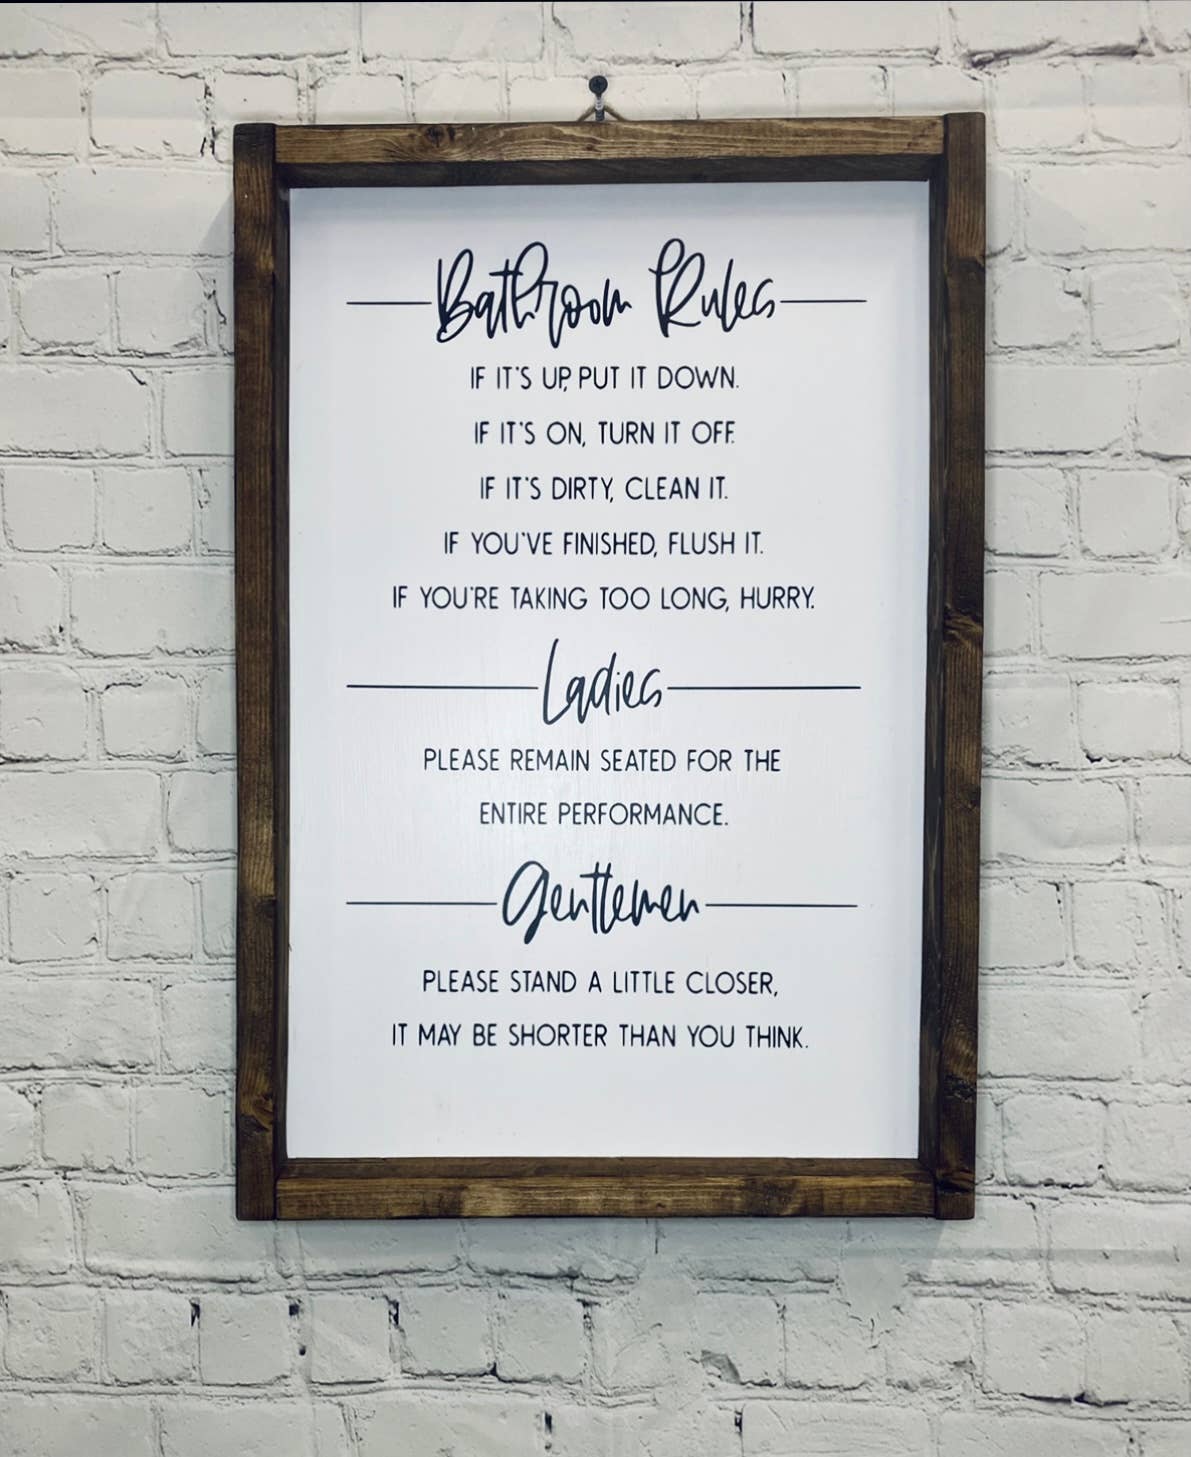 Bathroom Rules
IF IT'S UP, PUT IT DOWN.
IF IT'S ON, TURN IT OFF.
IF IT'S DIRTY, CLEAN IT.
IF YOU'VE FINISHED, FLUSH IT.
IF YOU'RE TAKING TOO LONG, HURRY.
Ladies
PLEASE REMAIN SEATED FOR THE
ENTIRE PERFORMANCE.
Gentlemen
PLEASE STAND A LITTLE CLOSER,
IT MAY BE SHORTER THAN YOU THINK.